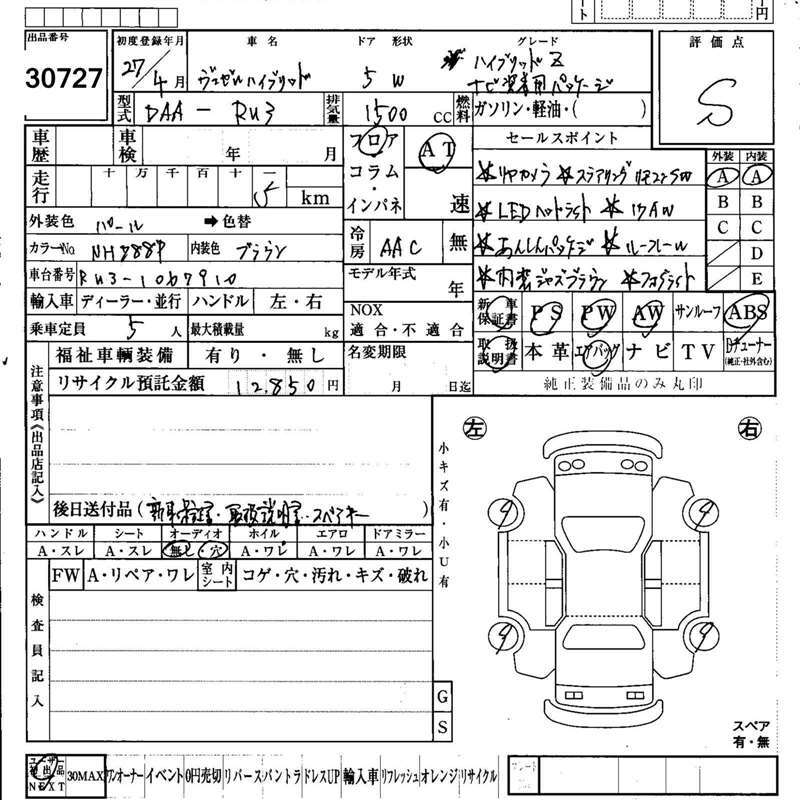 ート 円
出品番号 初度登録年月 車名 ドア 形状 グレード 評価点
30727 27/4月 ヴェゼルハイブリッド 5 W ハイブリッド Z S
ナビ装着用パッケージ
型式 DAA - RU3 排気量 1500 CC 燃料 ガソリン・軽油・( )
車歴 車検 年 月 フロア AT セールスポイント 外装 内装
走行 十 万 千 百 十 一 コラム ★リヤカメラ ★ステアリング A A
5 km ・インパネ 速 B B
外装色 パール ➡色替 冷房 AAC 無 ★LEDヘッドライト ★17AW C C
カラーNo. NH888P 内装色 ブラウン ★あんしんパッケージ ★ルーフレール D
車台番号 RU3-1067910 モデル年式 年 ★内装ジャズブラウン ★フォグライト E
輸入車 ディーラー・並行 ハンドル 左・右 NOX 新車保証書 PS PW AW サンルーフ ABS
乗車定員 5 人 最大積載量 kg 適合・不適合
福祉車輌装備 有り・無し 名変期限 取扱説明書 本革 エアバッグ ナビ TV Dチューナー(純正・社外含む)
リサイクル預託金額 12,850 円 月 日迄 純正装備品のみ丸印
注意事項《出品店記入》
左 右
小キズ有・小U有
後日送付品(新車保証書・取扱説明書・スペアキー)
ハンドル シート オーディオ ホイル エアロ ドアミラー
A・スレ A・スレ 無し・穴 A・ワレ A・ワレ A・ワレ
FW A・リペア・ワレ 室内シート コゲ・穴・汚れ・キズ・破れ
検査員記入
G
S
スペア
有・無
ユーザー NEXT 30MAX ワンオーナー イベント 0円売切 リバース バントラ ドレスUP 輸入車 リフレッシュ オレンジ リサイクル